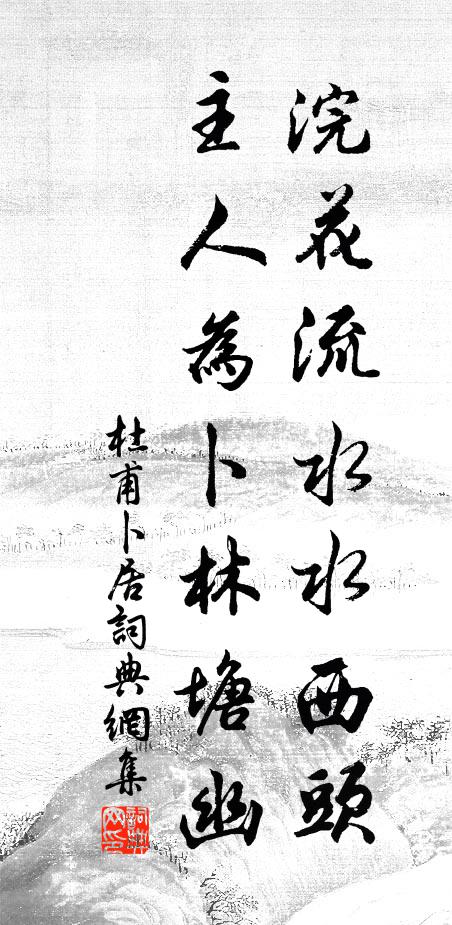 浣花流水水西頭
主人為卜林塘幽
杜甫卜居詞典網集